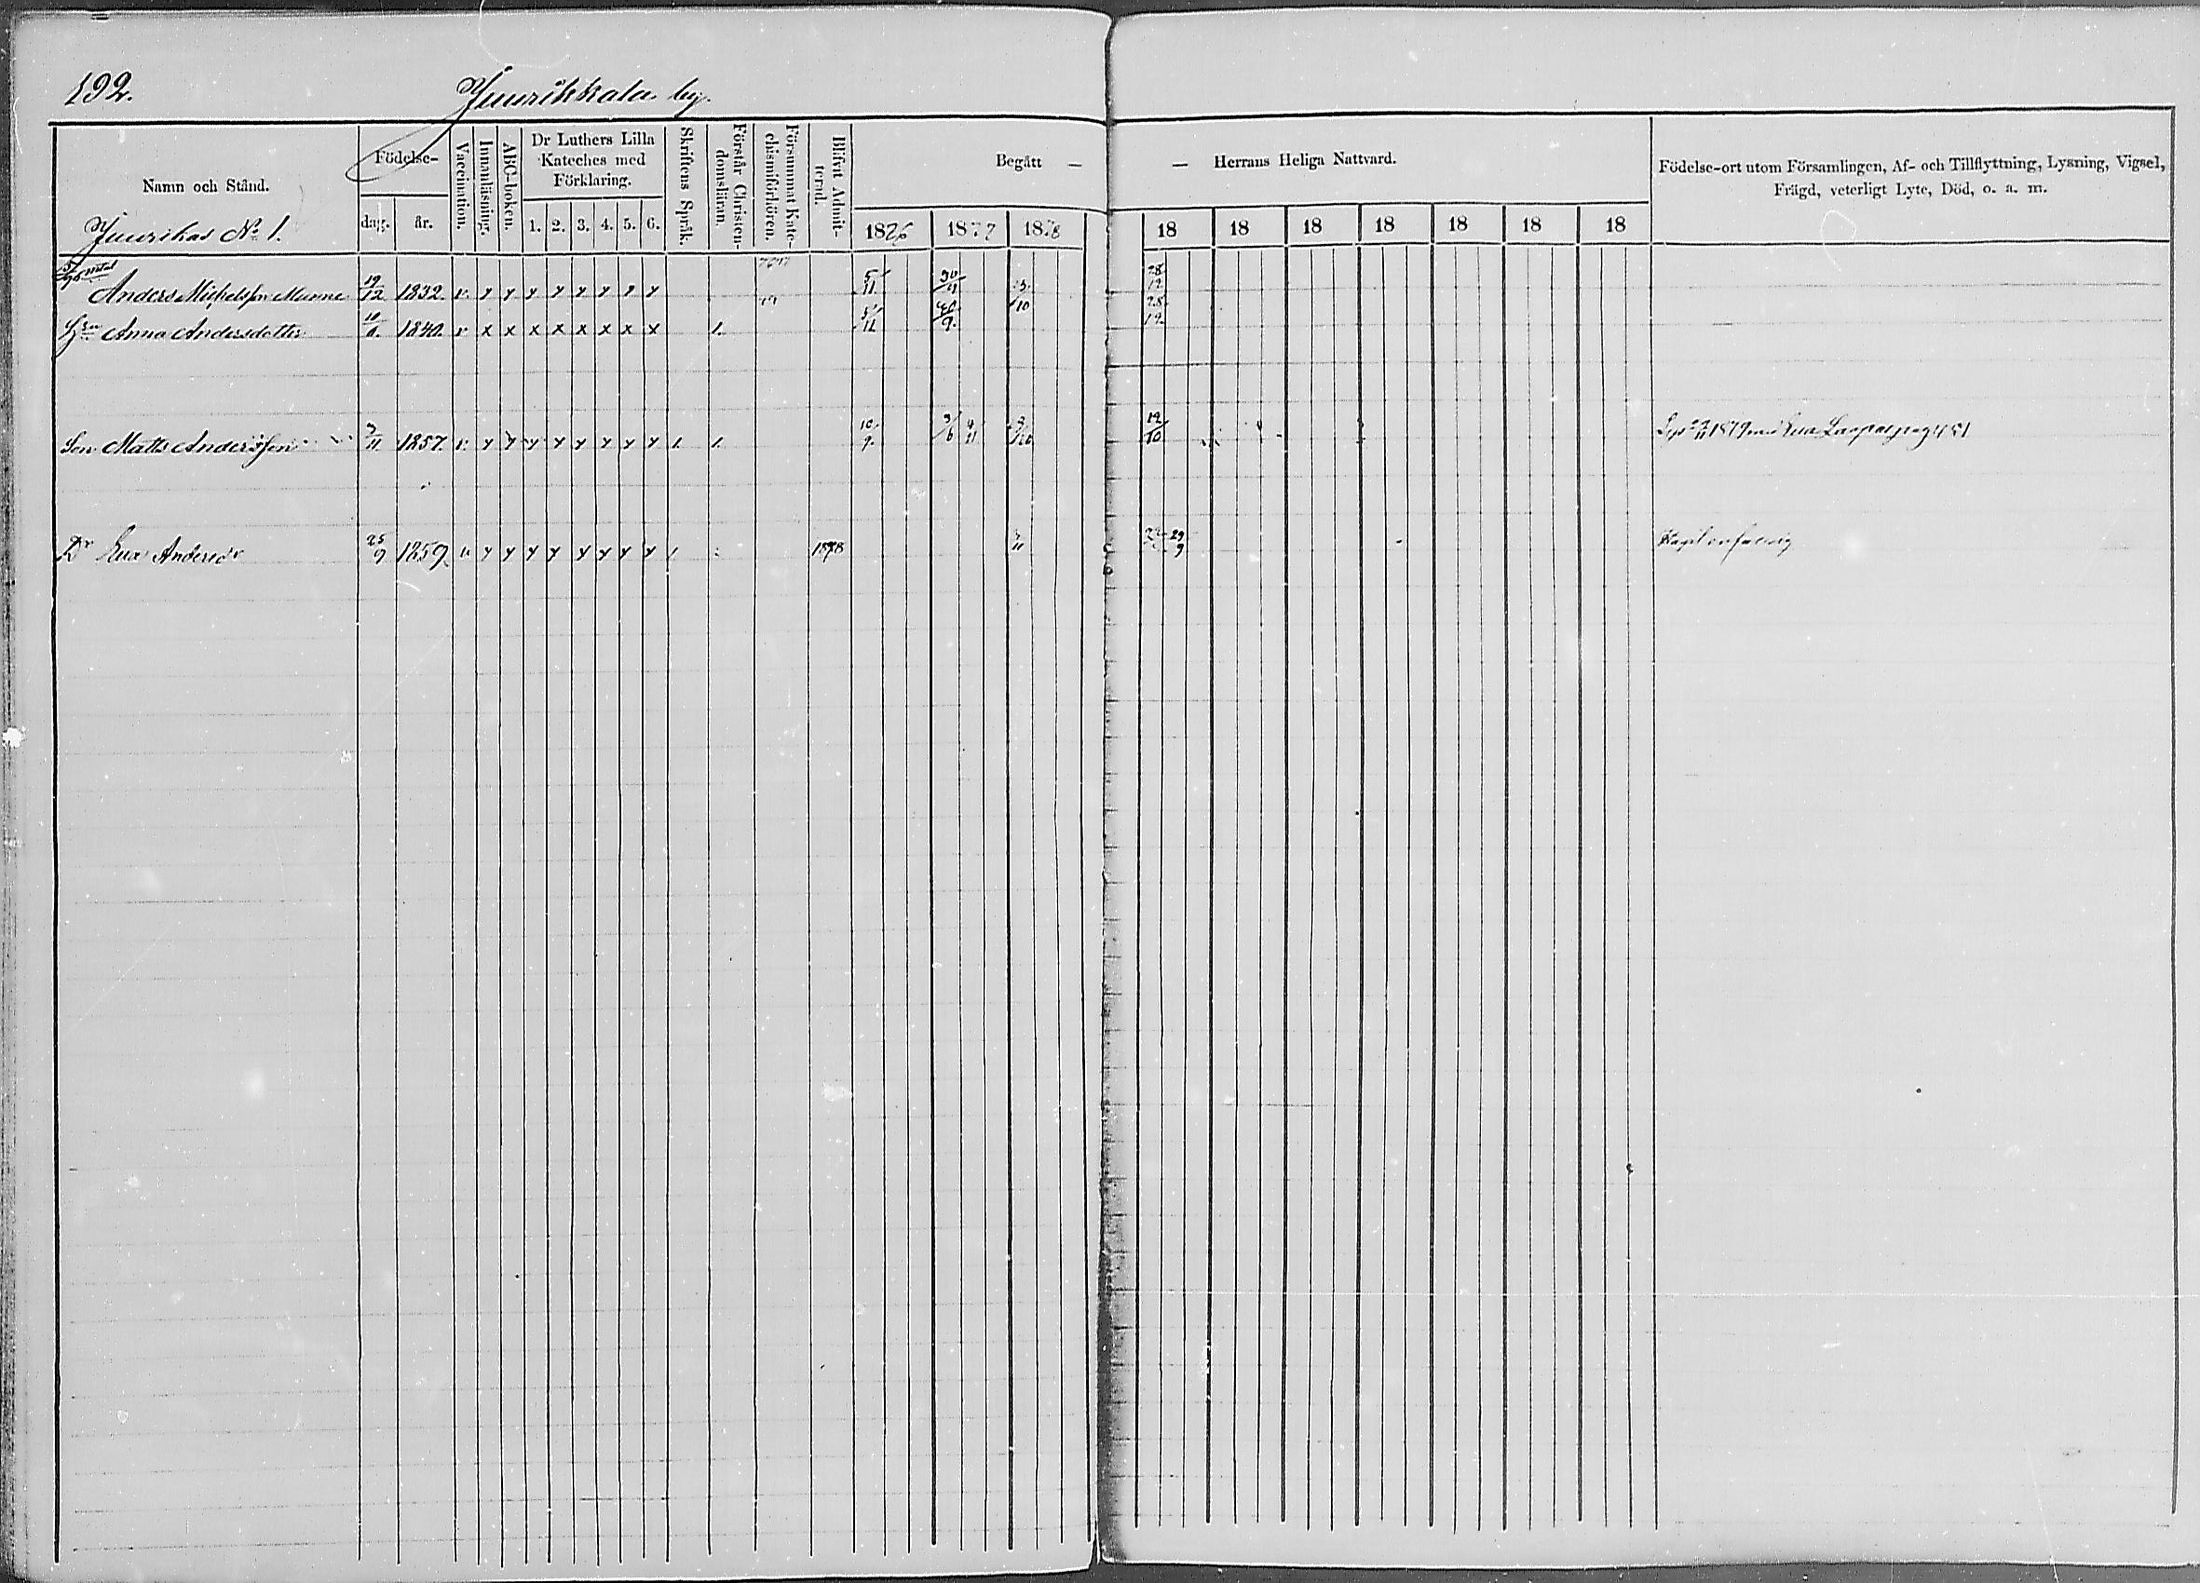 192. Juurikkala by.
Namn och Stånd.
Födelse-
dag. år.
Vaccination.
Innanläsning.
ABC-boken.
Dr Luthers Lilla
Kateches med
Förklaring.
1. 2. 3. 4. 5. 6.
Skriftens Språk.
Förstår Christen-
domsläran.
Försummat Kate-
chismiförhören.
Blifvit Admit-
terad.
Begått —
— Herrans Heliga Nattvard.
1876 1877 1878
18 18 18 18 18 18 18
Födelse-ort utom Församlingen, Af- och Tillflyttning, Lysning, Vigsel,
Frägd, veterligt Lyte, Död, o. a. m.
Juurikas No 1.
mtal
Anders Michelsson Munne 19/12 1832. v. y y y y y y y y 5/11 30/11 3/10 28/12
Hu Anna Andersdotter 10/6. 1840. v x x x x x x x x 1. 5/11 30/9. 28/12.
Son Matts Andersson 3/11 1857. v. y y y y y y y y 1. 1. 10/9. 3/6 4/11 3/10 12/10 1879 med Eva pag 481
Dr Eva Andersdr 25/9 1859. v y y y y y y y y 1 1878 29/9